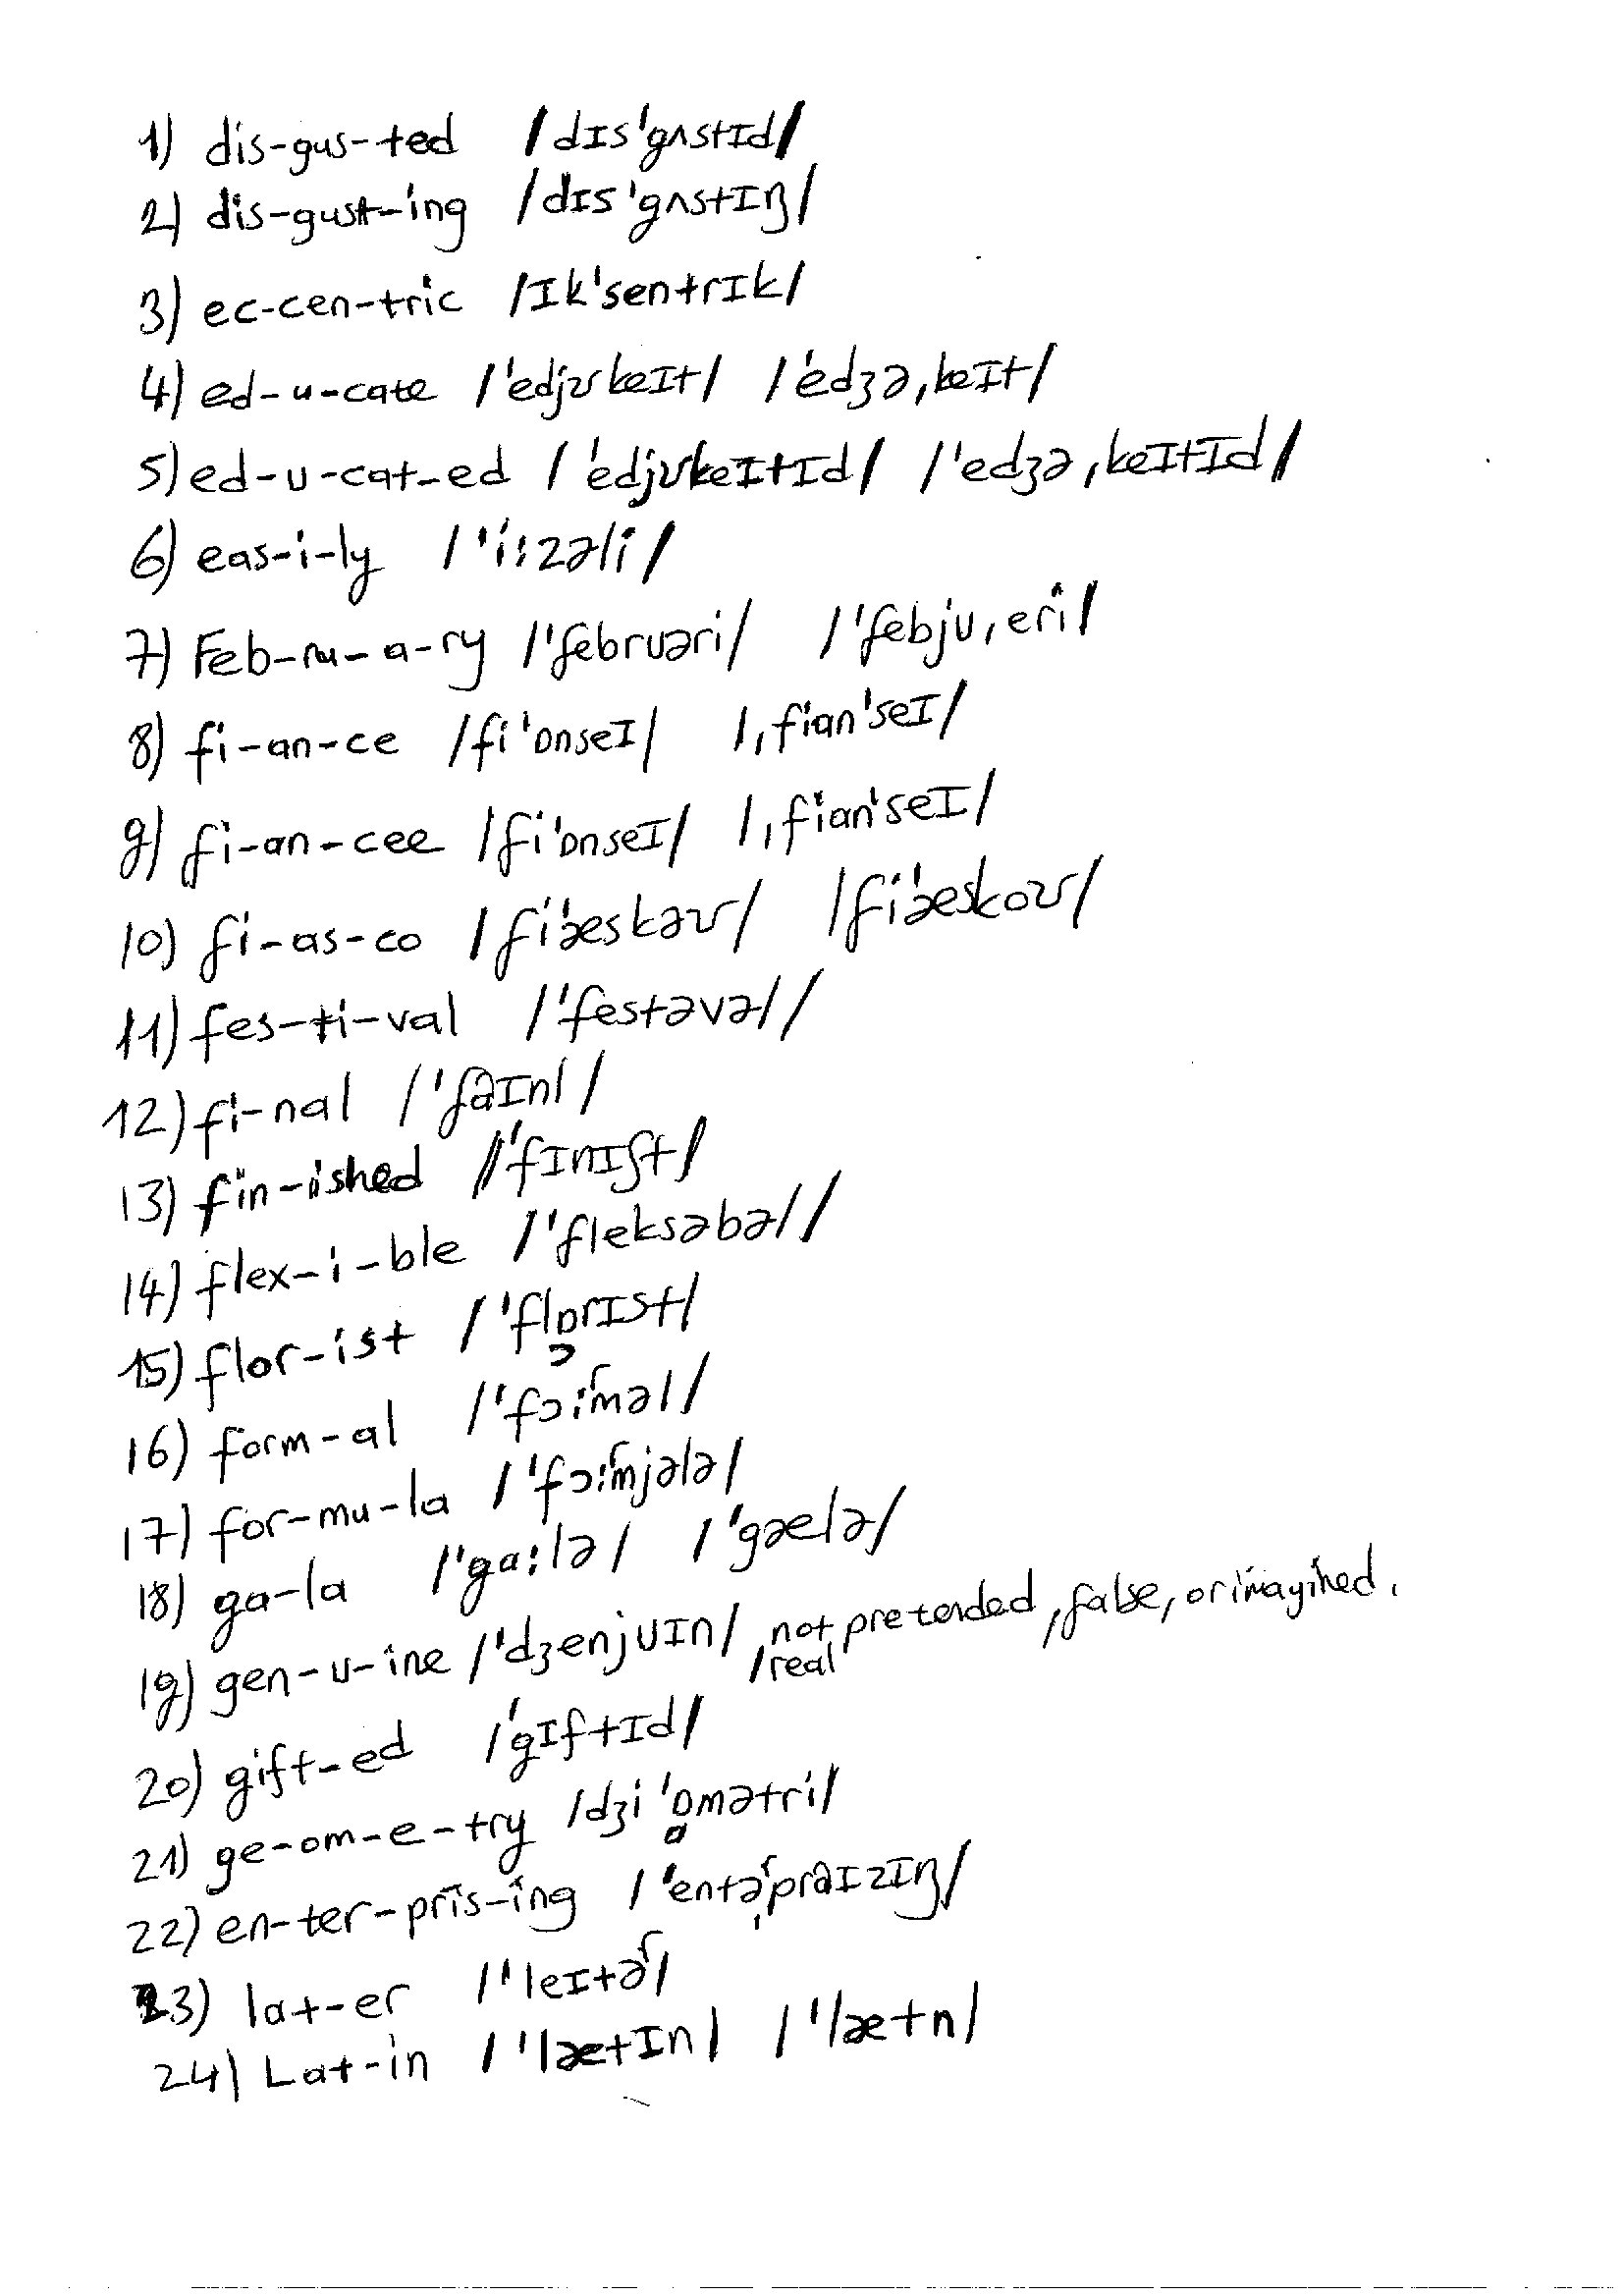 1) dis-gus-ted /dɪs'gʌstɪd/
2) dis-gust-ing /dɪs'gʌstɪŋ/
3) ec-cen-tric /ɪk'sentrɪk/
4) ed-u-cate /'edjʊkeɪt/ /'edʒə,keɪt/
5) ed-u-cat-ed /'edjʊkeɪtɪd/ /'edʒə,keɪtɪd/
6) eas-i-ly /'i:zəli/
7) Feb-ru-a-ry /'februəri/ /'febju,eri/
8) fi-an-ce /fi'ɒnseɪ/ /,fian'seɪ/
9) fi-an-cee /fi'ɒnseɪ/ /,fian'seɪ/
10) fi-as-co /fi'æskəʊ/ /fi'æskoʊ/
11) fes-ti-val /'festəvəl/
12) fi-nal /'faɪnl/
13) fin-ished /'fɪnɪʃt/
14) flex-i-ble /'fleksəbəl/
15) flor-ist /'flɒrɪst/
ɔ
16) form-al /'fɔ:ʳməl/
17) for-mu-la /'fɔ:ʳmjələ/
18) ga-la /'ga:lə/ /'gælə/
19) gen-u-ine /'dʒenjuɪn/ not pretended, false, or imagined.
/real
20) gift-ed /'gɪftɪd/
21) ge-om-e-try /dʒi'ɒmətri/
a
22) en-ter-pris-ing /'entəʳ,praɪzɪŋ/
23) lat-er /'leɪtəʳ/
24) Lat-in /'lætɪn/ /'lætn/